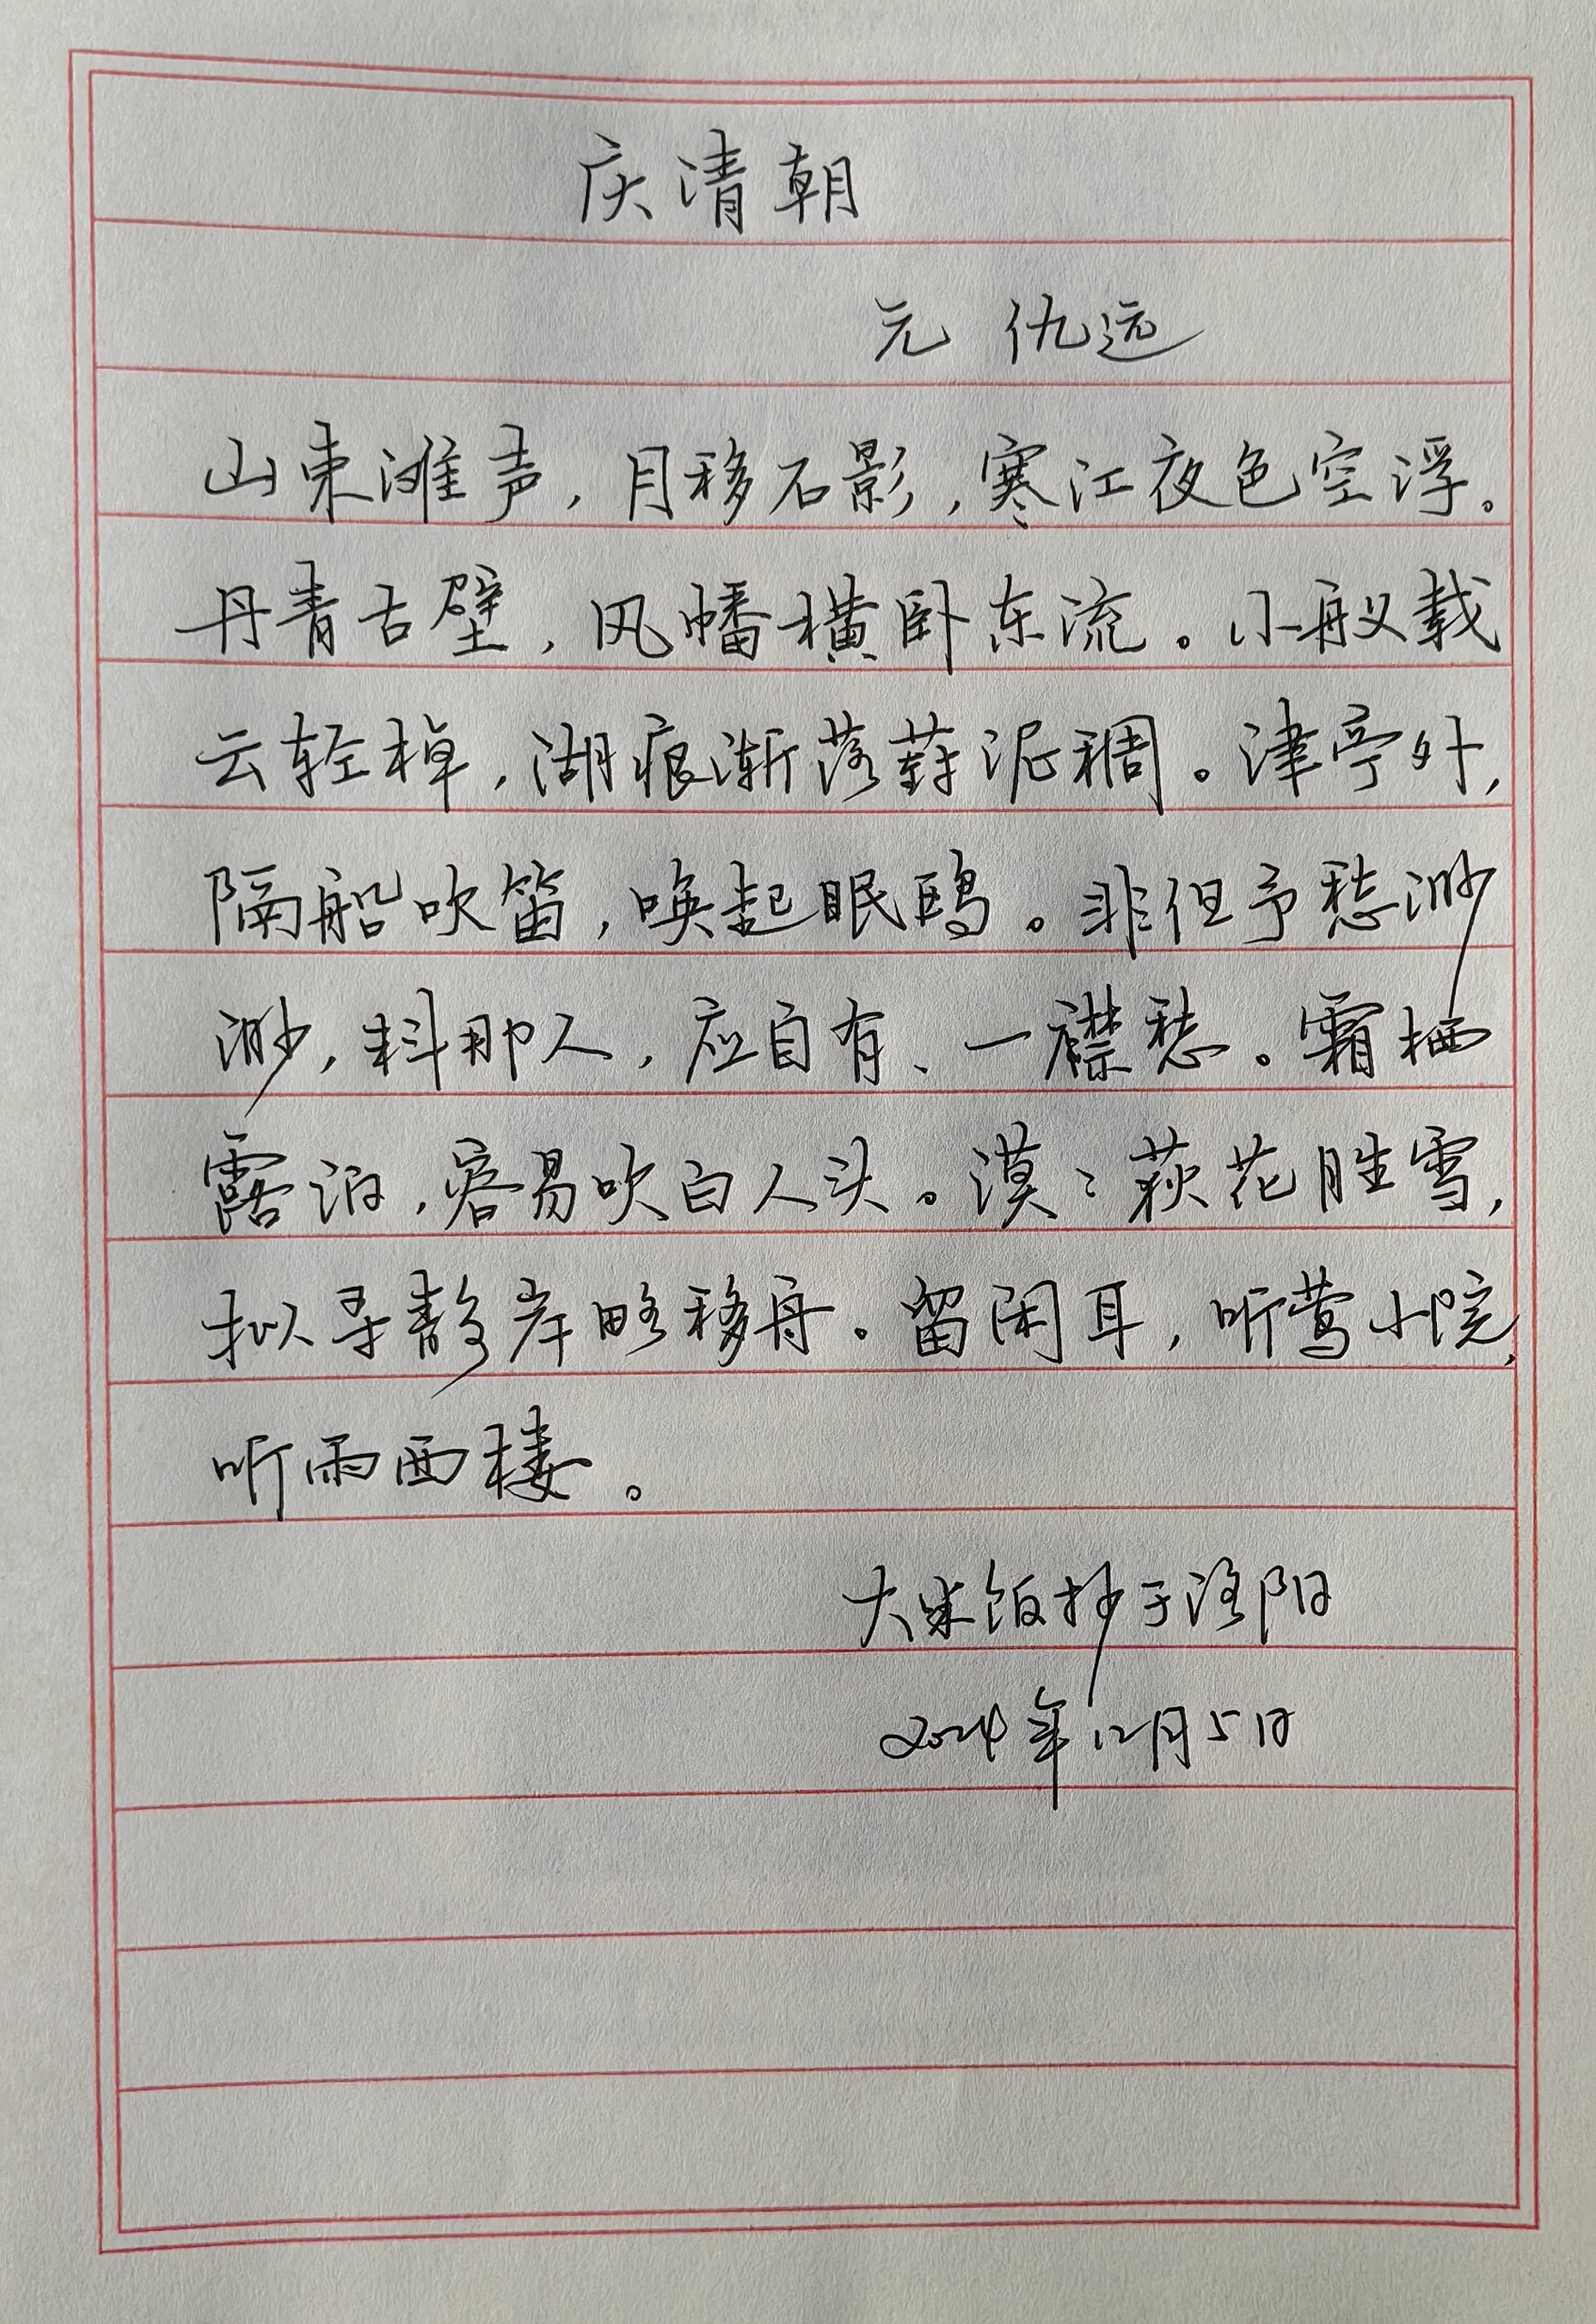 庆清朝
元 仇远
山束滩声，月移石影，寒江夜色空浮。
丹青古壁，风幡横卧东流。小舣载
云轻棹，湖痕渐落葑泥稠。津亭外，
隔船吹笛，唤起眠鸥。非但予愁渺
渺，料那人，应自有、一襟愁。霜栖
露泊，容易吹白人头。漠〻荻花胜雪，
拟寻静岸略移舟。留闲耳，听莺小院，
听雨西楼。
大米饭抄于洛阳
2024年12月5日